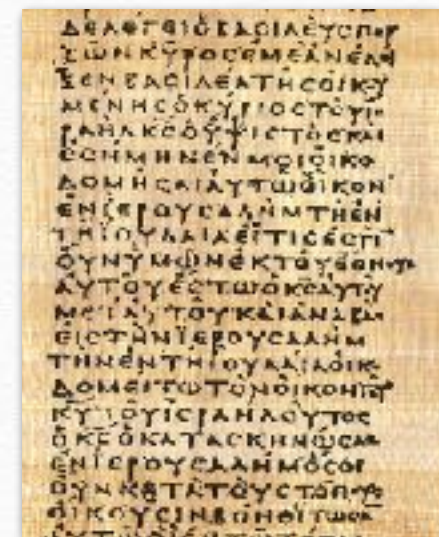 ΔΕΛΕΓΕΙΟΒΑϹΙΛΕΥϹΠΕΡ
ϹΩΝΚΥΡΟϹΕΜΕΑΝΕΔΕΙ
ΞΕΝΒΑϹΙΛΕΑΤΗϹΟΙΚΟΥ
ΜΕΝΗϹΟΚΥΡΙΟϹΤΟΥΙϹ
ΡΑΗΛΚϹΟΥΨΙϹΤΟϹΚΑΙ
ΕϹΗΜΗΝΕΝΜΟΙΟΙΚΟ
ΔΟΜΗϹΑΙΑΥΤΩΟΙΚΟΝ
ΕΝΙΕΡΟΥϹΑΛΗΜΤΗΕΝ
ΤΗΙΟΥΔΑΙΑΕΙΤΙϹΕϹΤΙ
ΟΥΝΥΜΩΝΕΚΤΟΥΕΘΝΟΥϹ
ΑΥΤΟΥΕϹΤΩΟΚϹΑΥΤΟΥ
ΜΕΤΑΥΤΟΥΚΑΙΑΝΑΒΑϹ
ΕΙϹΤΗΝΪΕΡΟΥϹΑΛΗΜ
ΤΗΝΕΝΤΗΙΟΥΔΑΙΑΟΙΚΟ
ΔΟΜΕΙΤΩΤΟΝΟΙΚΟΝΤΟΥ
ΚΥΡΙΟΥΙϹΡΑΗΛΟΥΤΟϹ
ΟΚϹΟΚΑΤΑϹΚΗΝΩϹΑϹ
ΕΝΙΕΡΟΥϹΑΛΗΜΟϹΟΙ
ΟΥΝΚΑΤΑΤΟΥϹΤΟΠΟΥϹ
ΟΙΚΟΥϹΙΝΒΟΗΘΕΙΤΩϹΑΝ